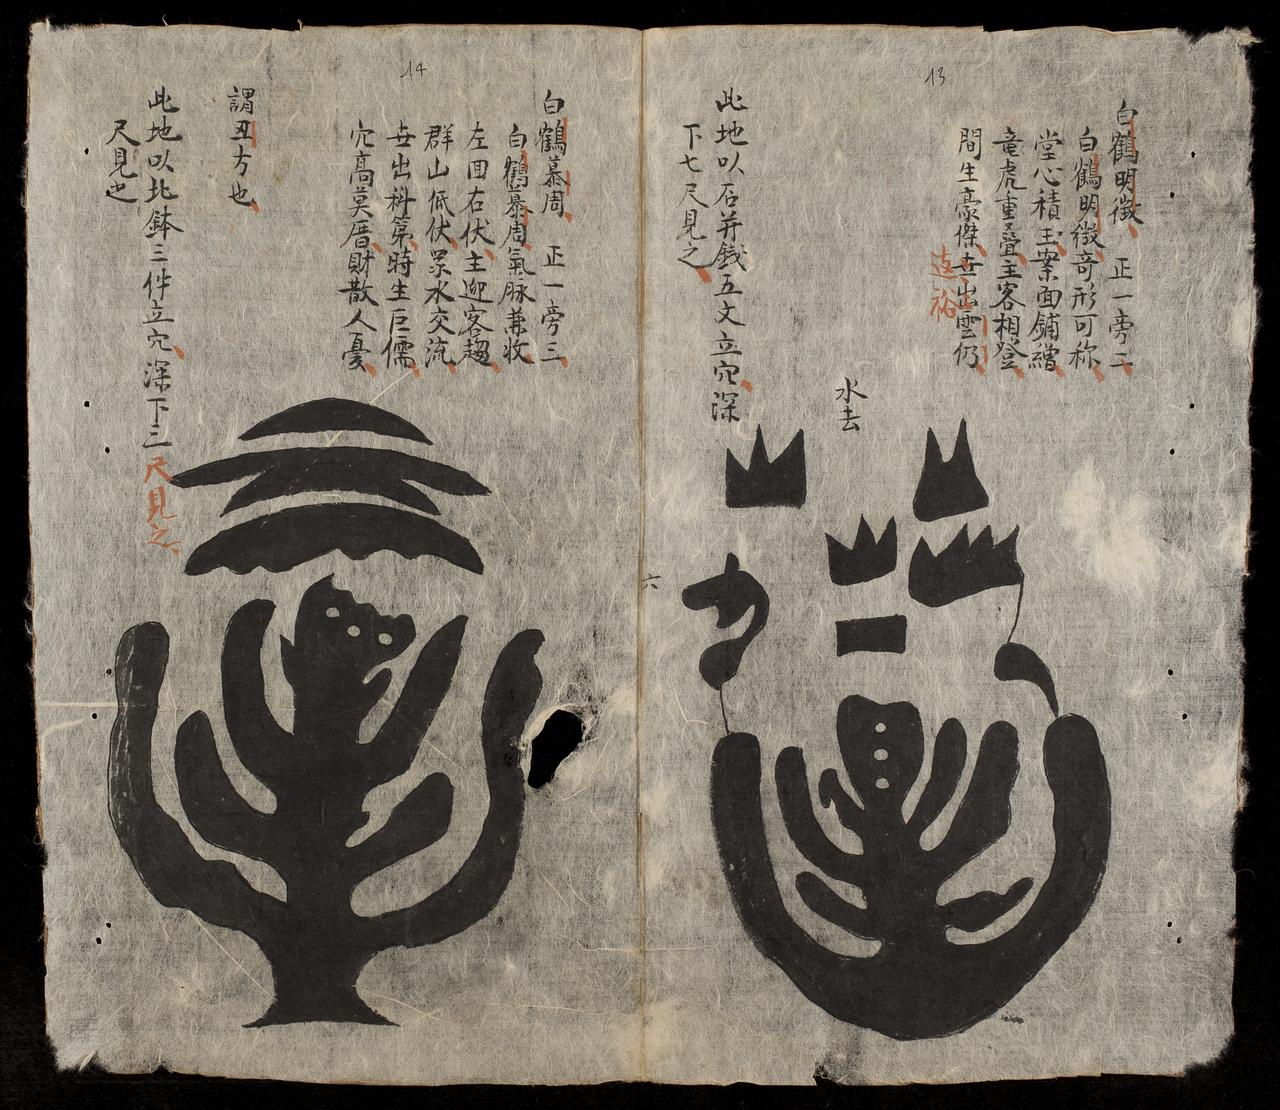 13
白鶴明徵 正一旁二
白鶴明徵竒形可称
堂心積玉案面鋪繒
竜虎重疊主客相登
間生豪傑世出雲仍
遠裕
水去
此地以石并錢五文立穴深
下七尺見之
六
14
白鶴慕周 正一旁三
白鶴慕周氣脉兼收
左回右伏主迎客趨
群山低伏眾水交流
世出科第時生巨儒
穴高莫厝財散人憂
謂丑方也
此地以北鉢三件立穴深下三尺見之
尺見之